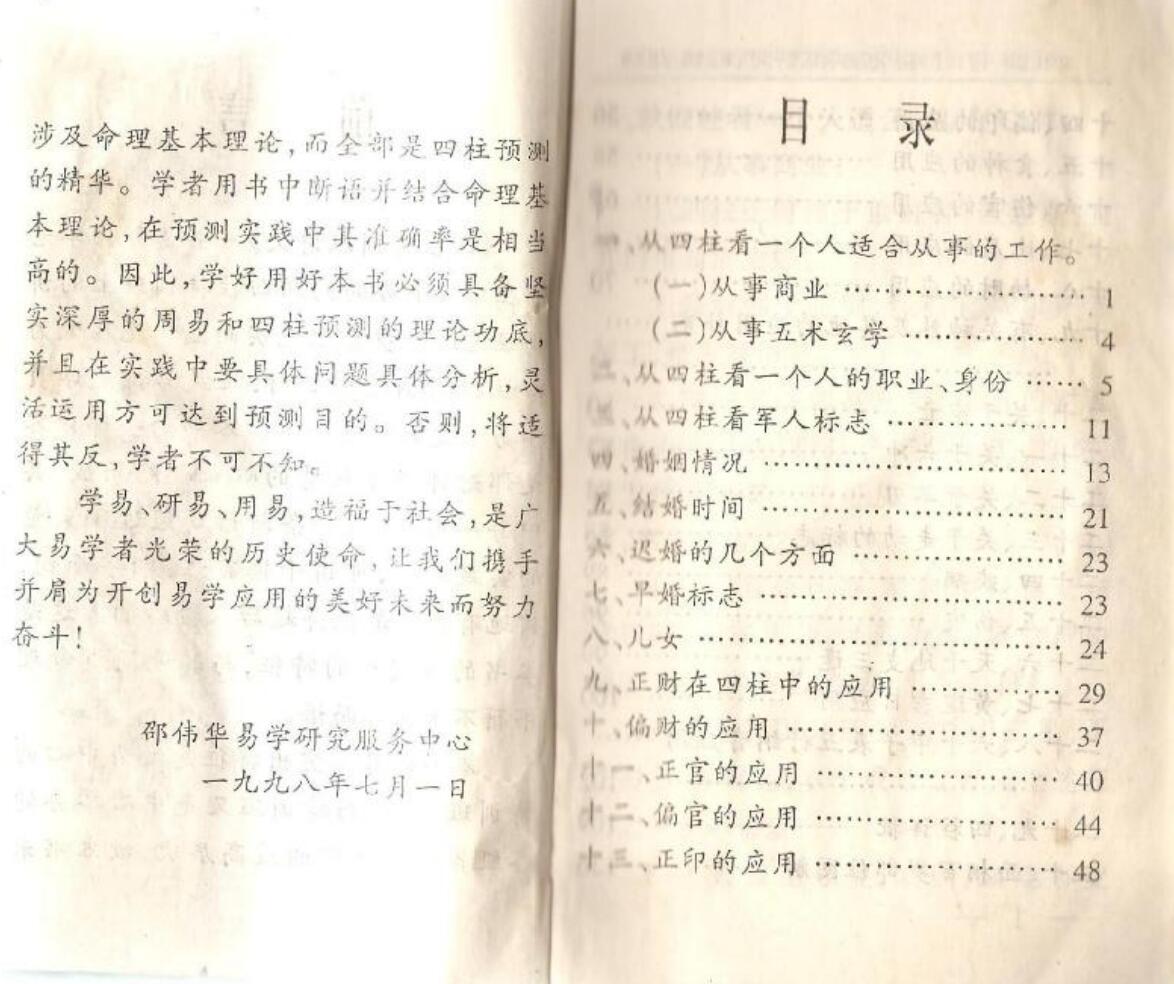 涉及命理基本理论,而全部是四柱预测
的精华。学者用书中断语并结合命理基
本理论,在预测实践中其准确率是相当
高的。因此,学好用好本书必须具备坚
实深厚的周易和四柱预测的理论功底,
并且在实践中要具体问题具体分析,灵
活运用方可达到预测目的。否则,将适
得其反,学者不可不知。
学易、研易、用易,造福于社会,是广
大易学者光荣的历史使命,让我们携手
并肩为开创易学应用的美好未来而努力
奋斗!
邵伟华易学研究服务中心
一九九八年七月一日
目 录
一、从四柱看一个人适合从事的工作。
(一)从事商业 ……………………… 1
(二)从事五术玄学 ……………… 4
二、从四柱看一个人的职业、身份 …… 5
三、从四柱看军人标志 ……………… 11
四、婚姻情况 ………………………… 13
五、结婚时间 ………………………… 21
六、迟婚的几个方面 ………………… 23
七、早婚标志 ………………………… 23
八、儿女 ……………………………… 24
九、正财在四柱中的应用 …………… 29
十、偏财的应用 ……………………… 37
十一、正官的应用 …………………… 40
十二、偏官的应用 …………………… 44
十三、正印的应用 …………………… 48